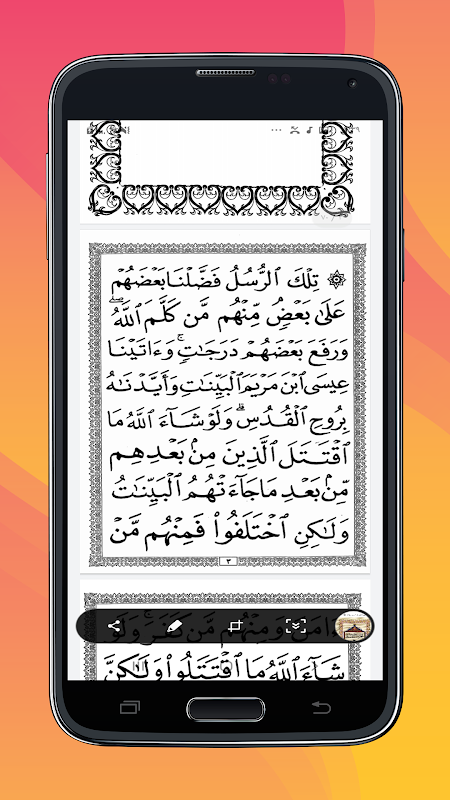 ۞ تِلْكَ الرُّسُلُ فَضَّلْنَا بَعْضَهُمْ
عَلَىٰ بَعْضٍ مِّنْهُم مَّن كَلَّمَ اللَّهُ
وَرَفَعَ بَعْضَهُمْ دَرَجَاتٍ وَءَاتَيْنَا
عِيسَى ابْنَ مَرْيَمَ الْبَيِّنَاتِ وَأَيَّدْنَاهُ
بِرُوحِ الْقُدُسِ وَلَوْ شَاءَ اللَّهُ مَا
اقْتَتَلَ الَّذِينَ مِنۢ بَعْدِهِم
مِّنۢ بَعْدِ مَا جَاءَتْهُمُ الْبَيِّنَاتُ
وَلَٰكِنِ اخْتَلَفُوا فَمِنْهُم مَّنْ
٣
ءَامَنَ وَمِنْهُم مَّن كَفَرَ وَلَوْ
شَاءَ اللَّهُ مَا اقْتَتَلُوا وَلَٰكِنَّ